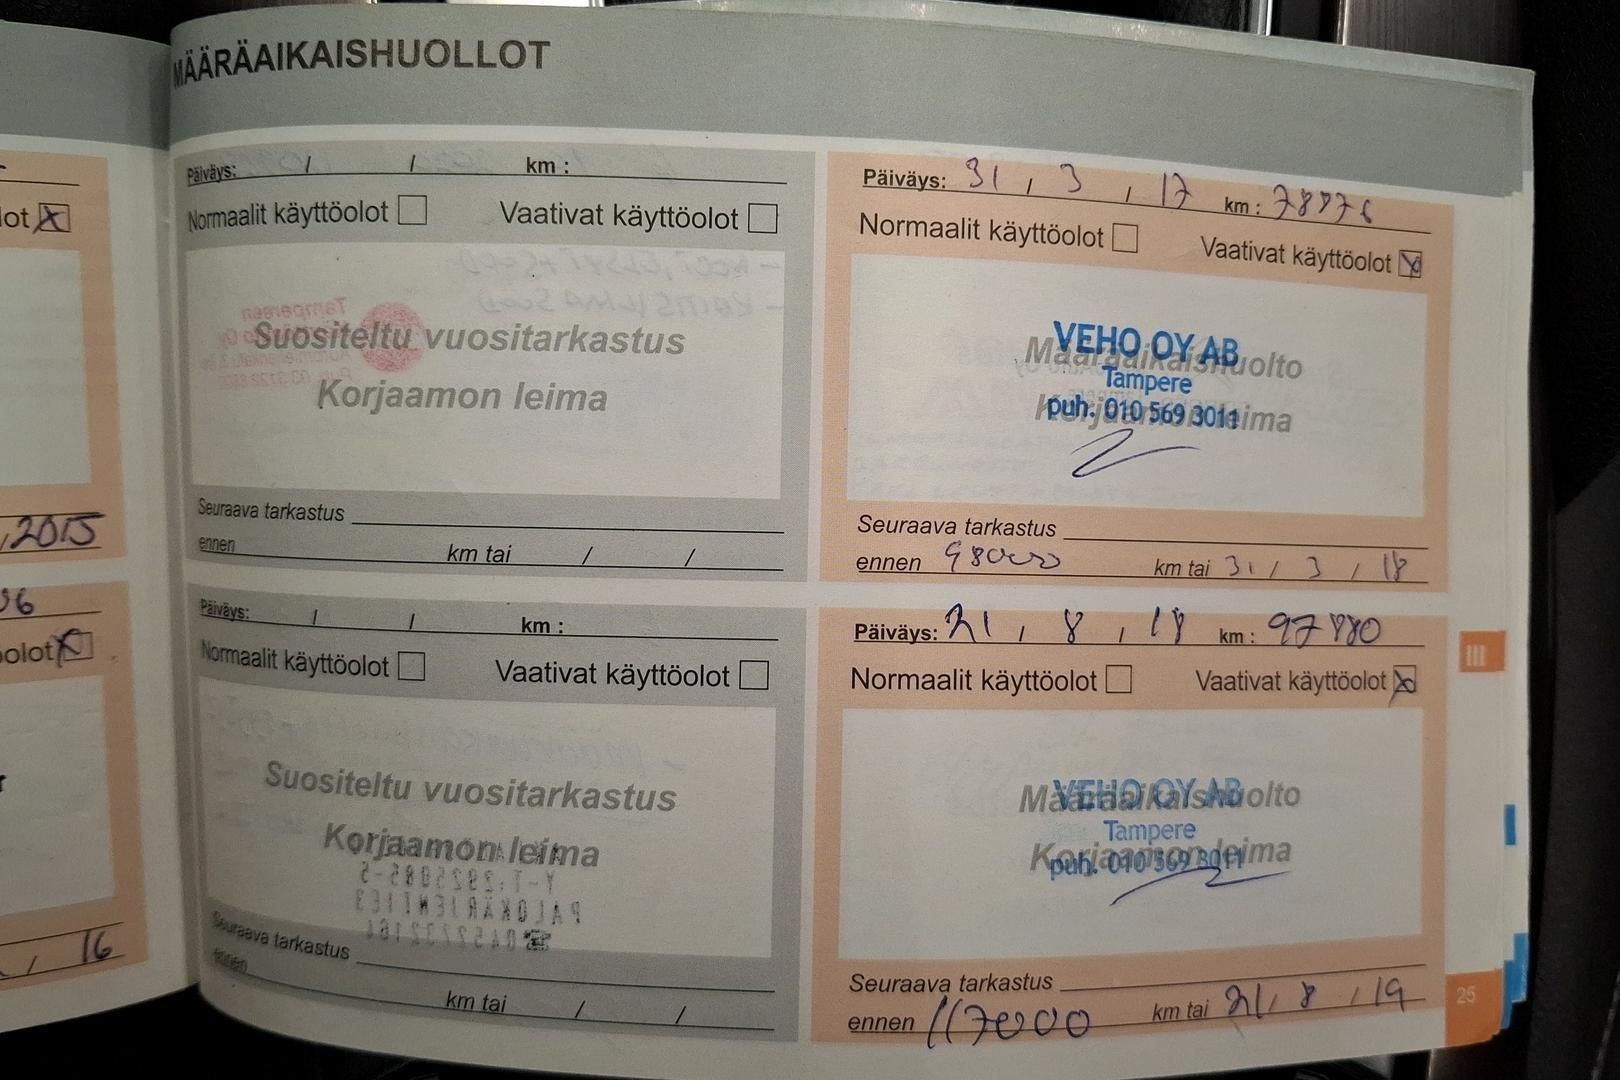 MÄÄRÄAIKAISHUOLLOT
lot
, 2015
olot
/ 16
Päiväys: / / km :
Normaalit käyttöolot Vaativat käyttöolot
Suositeltu vuositarkastus
Korjaamon leima
Seuraava tarkastus
ennen km tai / /
Päiväys: / / km :
Normaalit käyttöolot Vaativat käyttöolot
Suositeltu vuositarkastus
Korjaamon leima
Seuraava tarkastus
ennen km tai / /
Päiväys: 31 / 3 / 17 km :
Normaalit käyttöolot Vaativat käyttöolot
Määräaikaishuolto
Korjaamon leima
VEHO OY AB
Tampere
puh. 010 569 3011
Seuraava tarkastus
ennen 98000 km tai 31 / 3 / 18
Päiväys: 21 / 8 / 18 km :
Normaalit käyttöolot Vaativat käyttöolot
Määräaikaishuolto
Korjaamon leima
VEHO OY AB
Tampere
puh. 010 569 3011
Seuraava tarkastus
ennen 117000 km tai 21 / 8 / 19
III
25